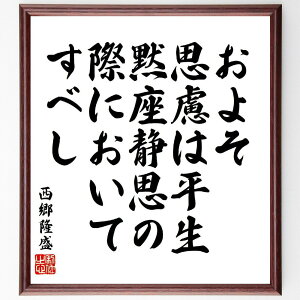 およそ
思慮は平生
黙座静思の
際において
すべし
西郷隆盛